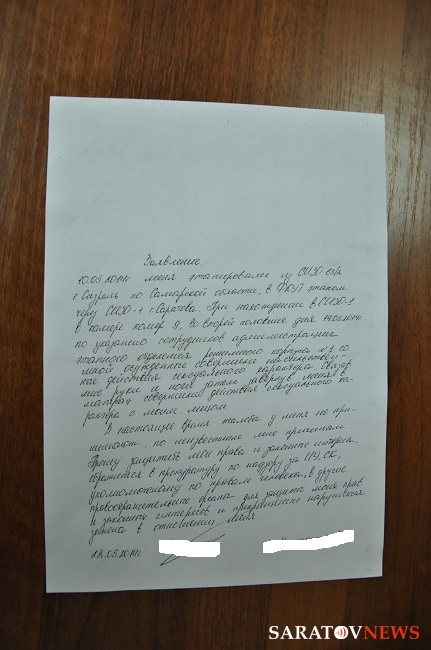 Заявление.
10.05.2014г. меня этапировали из СИЗО
г. Сызрань по Самарской области, в ФКУТ этапом
через СИЗО-1 г. Саратова. При нахождении в СИЗО-1
в камере номер 9, во второй половине дня 14.05.2014г.
по указанию сотрудников администрации
этапного отделения режимного корпуса № 2 со
мной осужденные совершили насильствен-
ные действия сексуального характера связав
мне руки и ноги затем завернув меня в
матрац совершили действия сексуального ха-
рактера с моим лицом.
В настоящее время жалобы у меня не при-
нимают, по неизвестным мне причинам.
Прошу защитить мои права и законные интересы.
обратится в прокуратуру по надзору за ИУ, СК,
уполномоченному по правам человека, в другие
правоохранительные органы для защиты моих прав
и законных интересов и прекращении нарушения
закона в отношении меня
19.05.2014г.
SARATOVNEWS